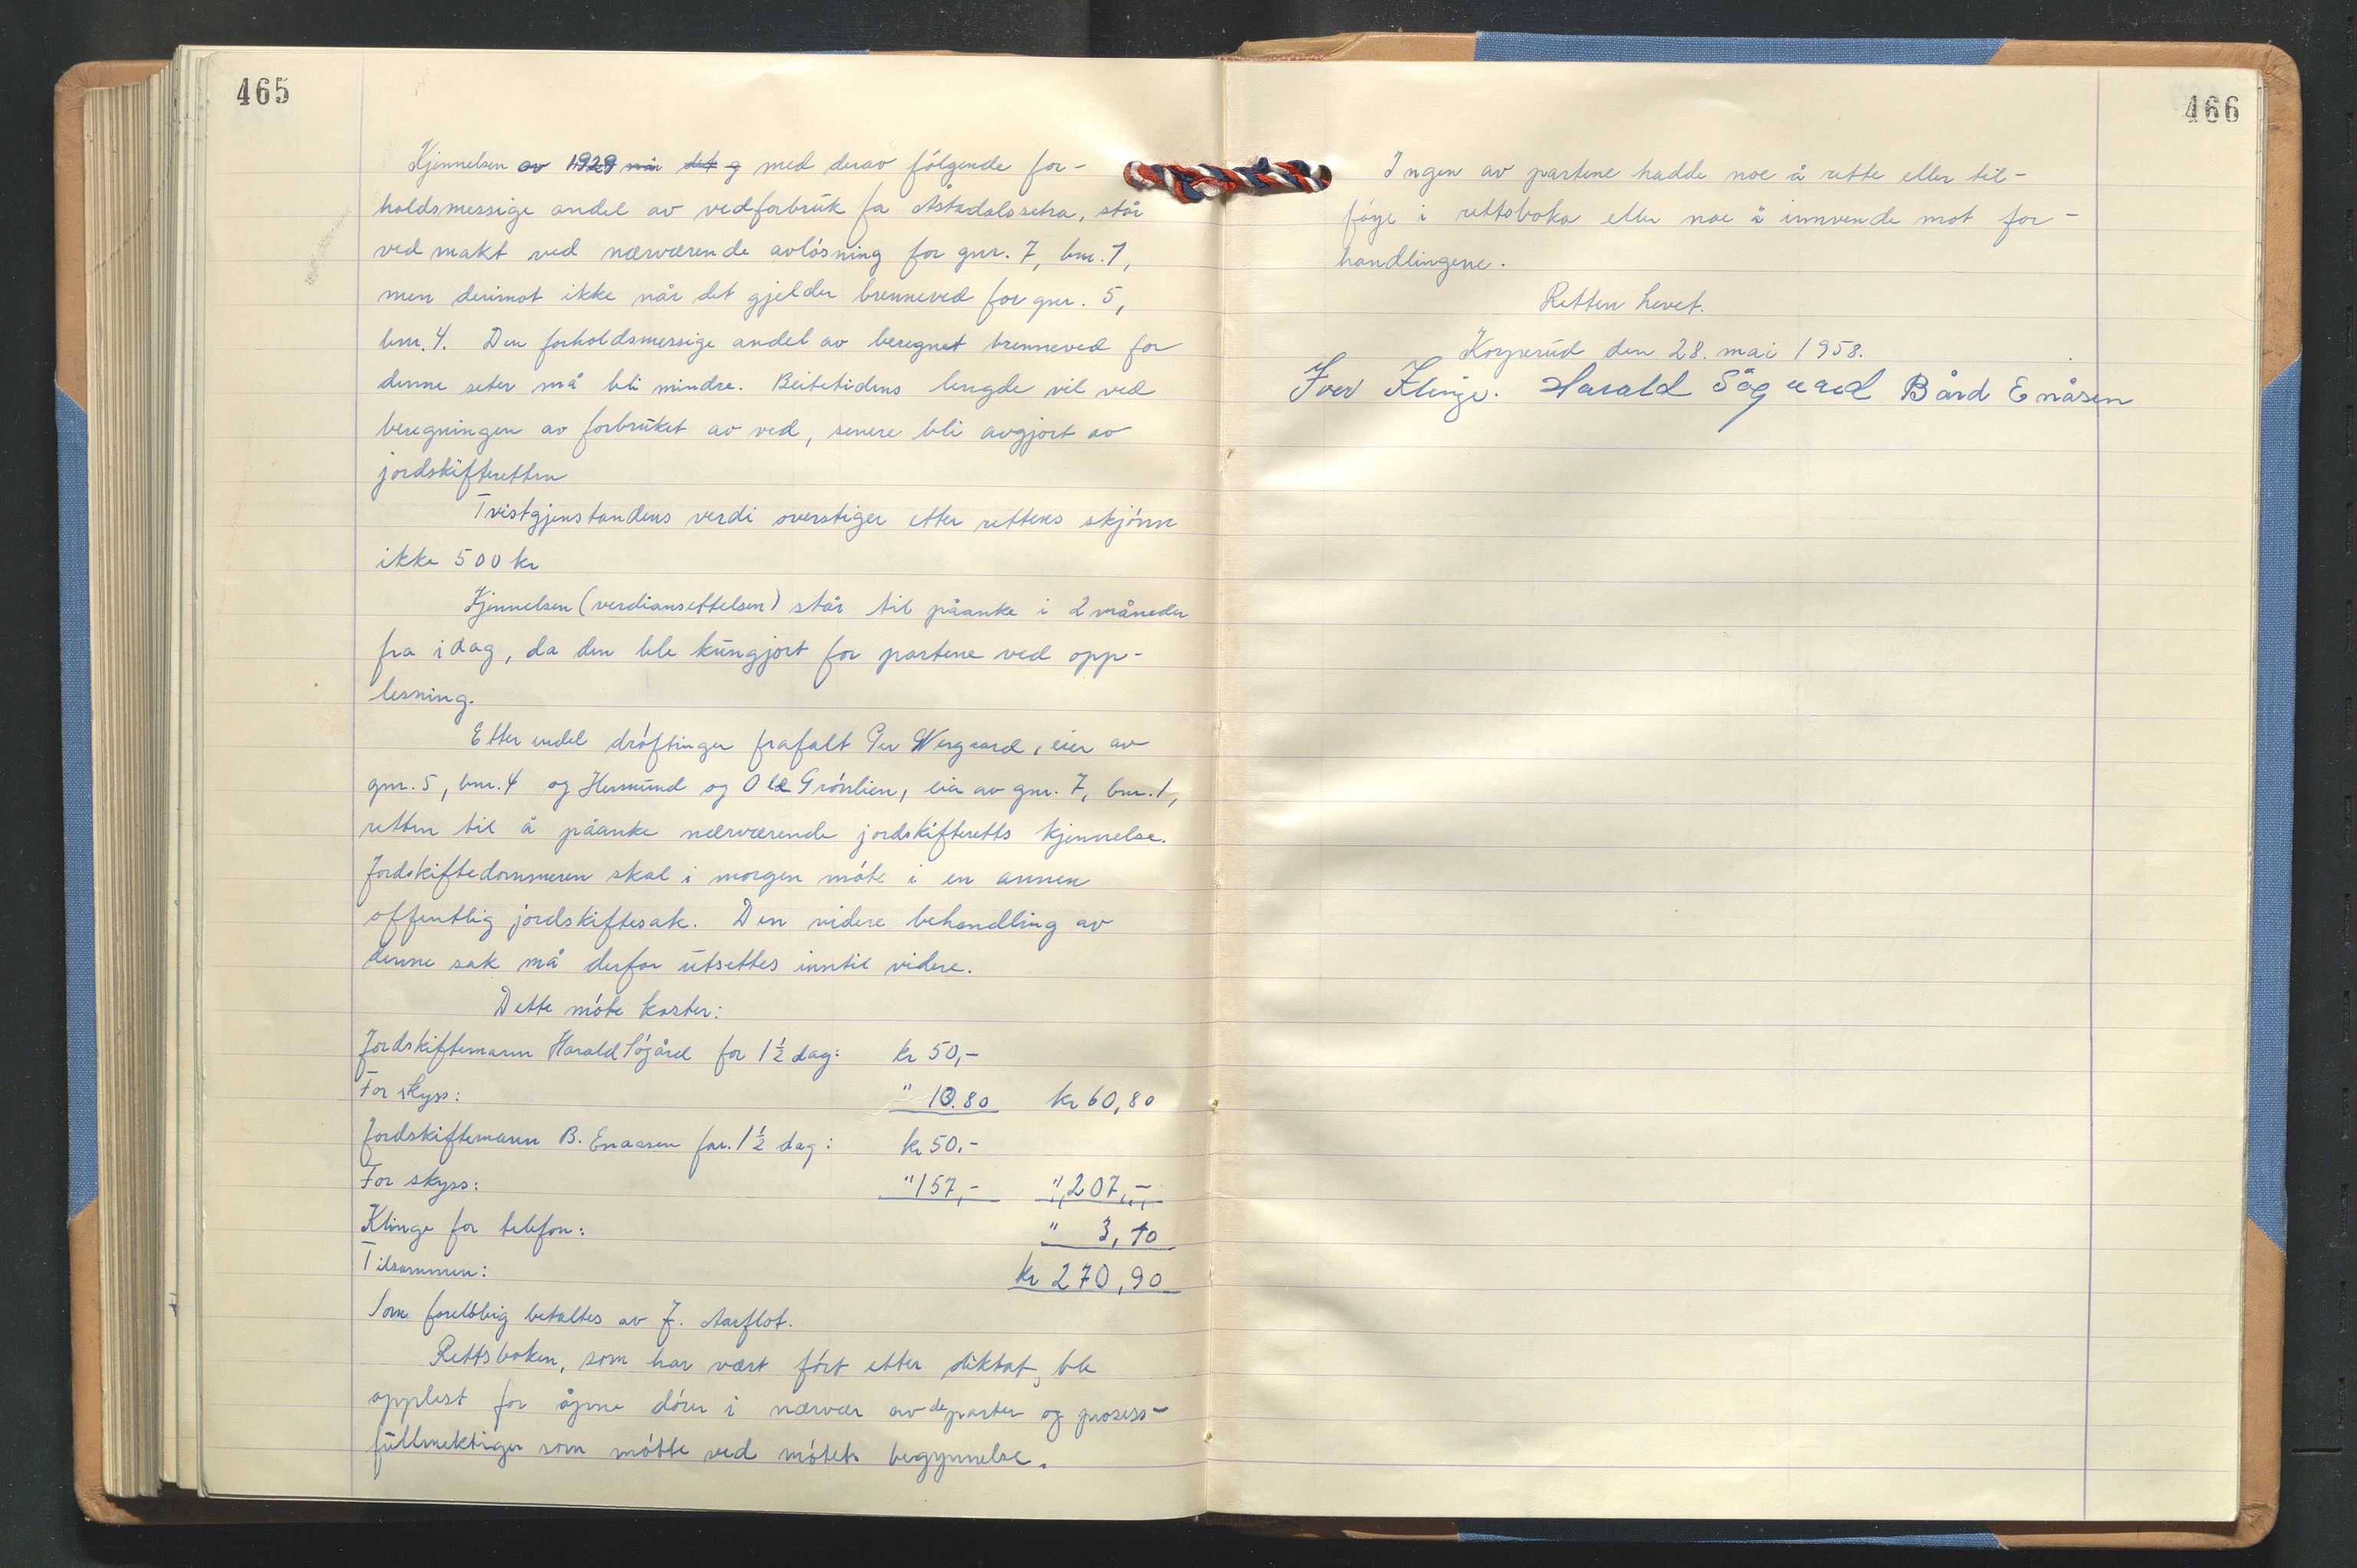 465
Kjennelsen av 1929 når det g med derav følgende for-
holdsmessige andel av vedforbruk fa Åstadalssetra, står
ved makt ved nærværende avløsning for gnr. 7, bnr. 1,
men derimot ikke når det gjelder brenneved for gnr. 5,
bnr. 4. Den forholdsmessige andel av beregnet brenneved for
denne seter må bli mindre. Beitetidens lengde vil ved
beregningen av forbruket av ved, senere bli avgjort av
jordskifteretten
Tvistgjenstandens verdi overstiger etter rettens skjønn
ikke 500 kr
Kjennelsen (verdiansettelsen) står til påanke i 2 måneder
fra idag, da den ble kungjort for partene ved opp-
lesning.
Etter endel drøftinger frafalt Per Wergaard, eier av
gnr. 5, bnr. 4 og Hermund og Ole Grønlien, eier av gnr. 7, bnr. 1,
retten til å påanke nærværende jordskifteretts kjennelse.
Jordskiftedommeren skal i morgen møte i en annen
offentlig jordskiftesak. Den videre behandling av
denne sak må derfor utsettes inntil videre.
Dette møte koster:
Jordskiftemann Harald Søgård for 1 1/2 dag: kr 50,-
For skyss: " 10.80 kr 60,80
Jordskiftemann B. Enaasen for. 1 1/2 dag: kr 50.-
For skyss: " 157,- " 207,-
Klinge for telefon: " 3,10
Tilsammen: kr 270,90
Som foreløbig betaltes av J. Aarflot.
Rettsboken, som har vært ført etter diktat, ble
opplest for åpne dører i nærvær av de parter og prosess-
fullmektiger som møtte ved møtets begynnelse.
466
Ingen av partene hadde noe å rette eller til-
føye i rettsboka eller noe å innvende mot for-
handlingene.
Retten hevet.
den 28. mai 1958.
Iver Klinge. Harald Søgaard Bård Enåsen